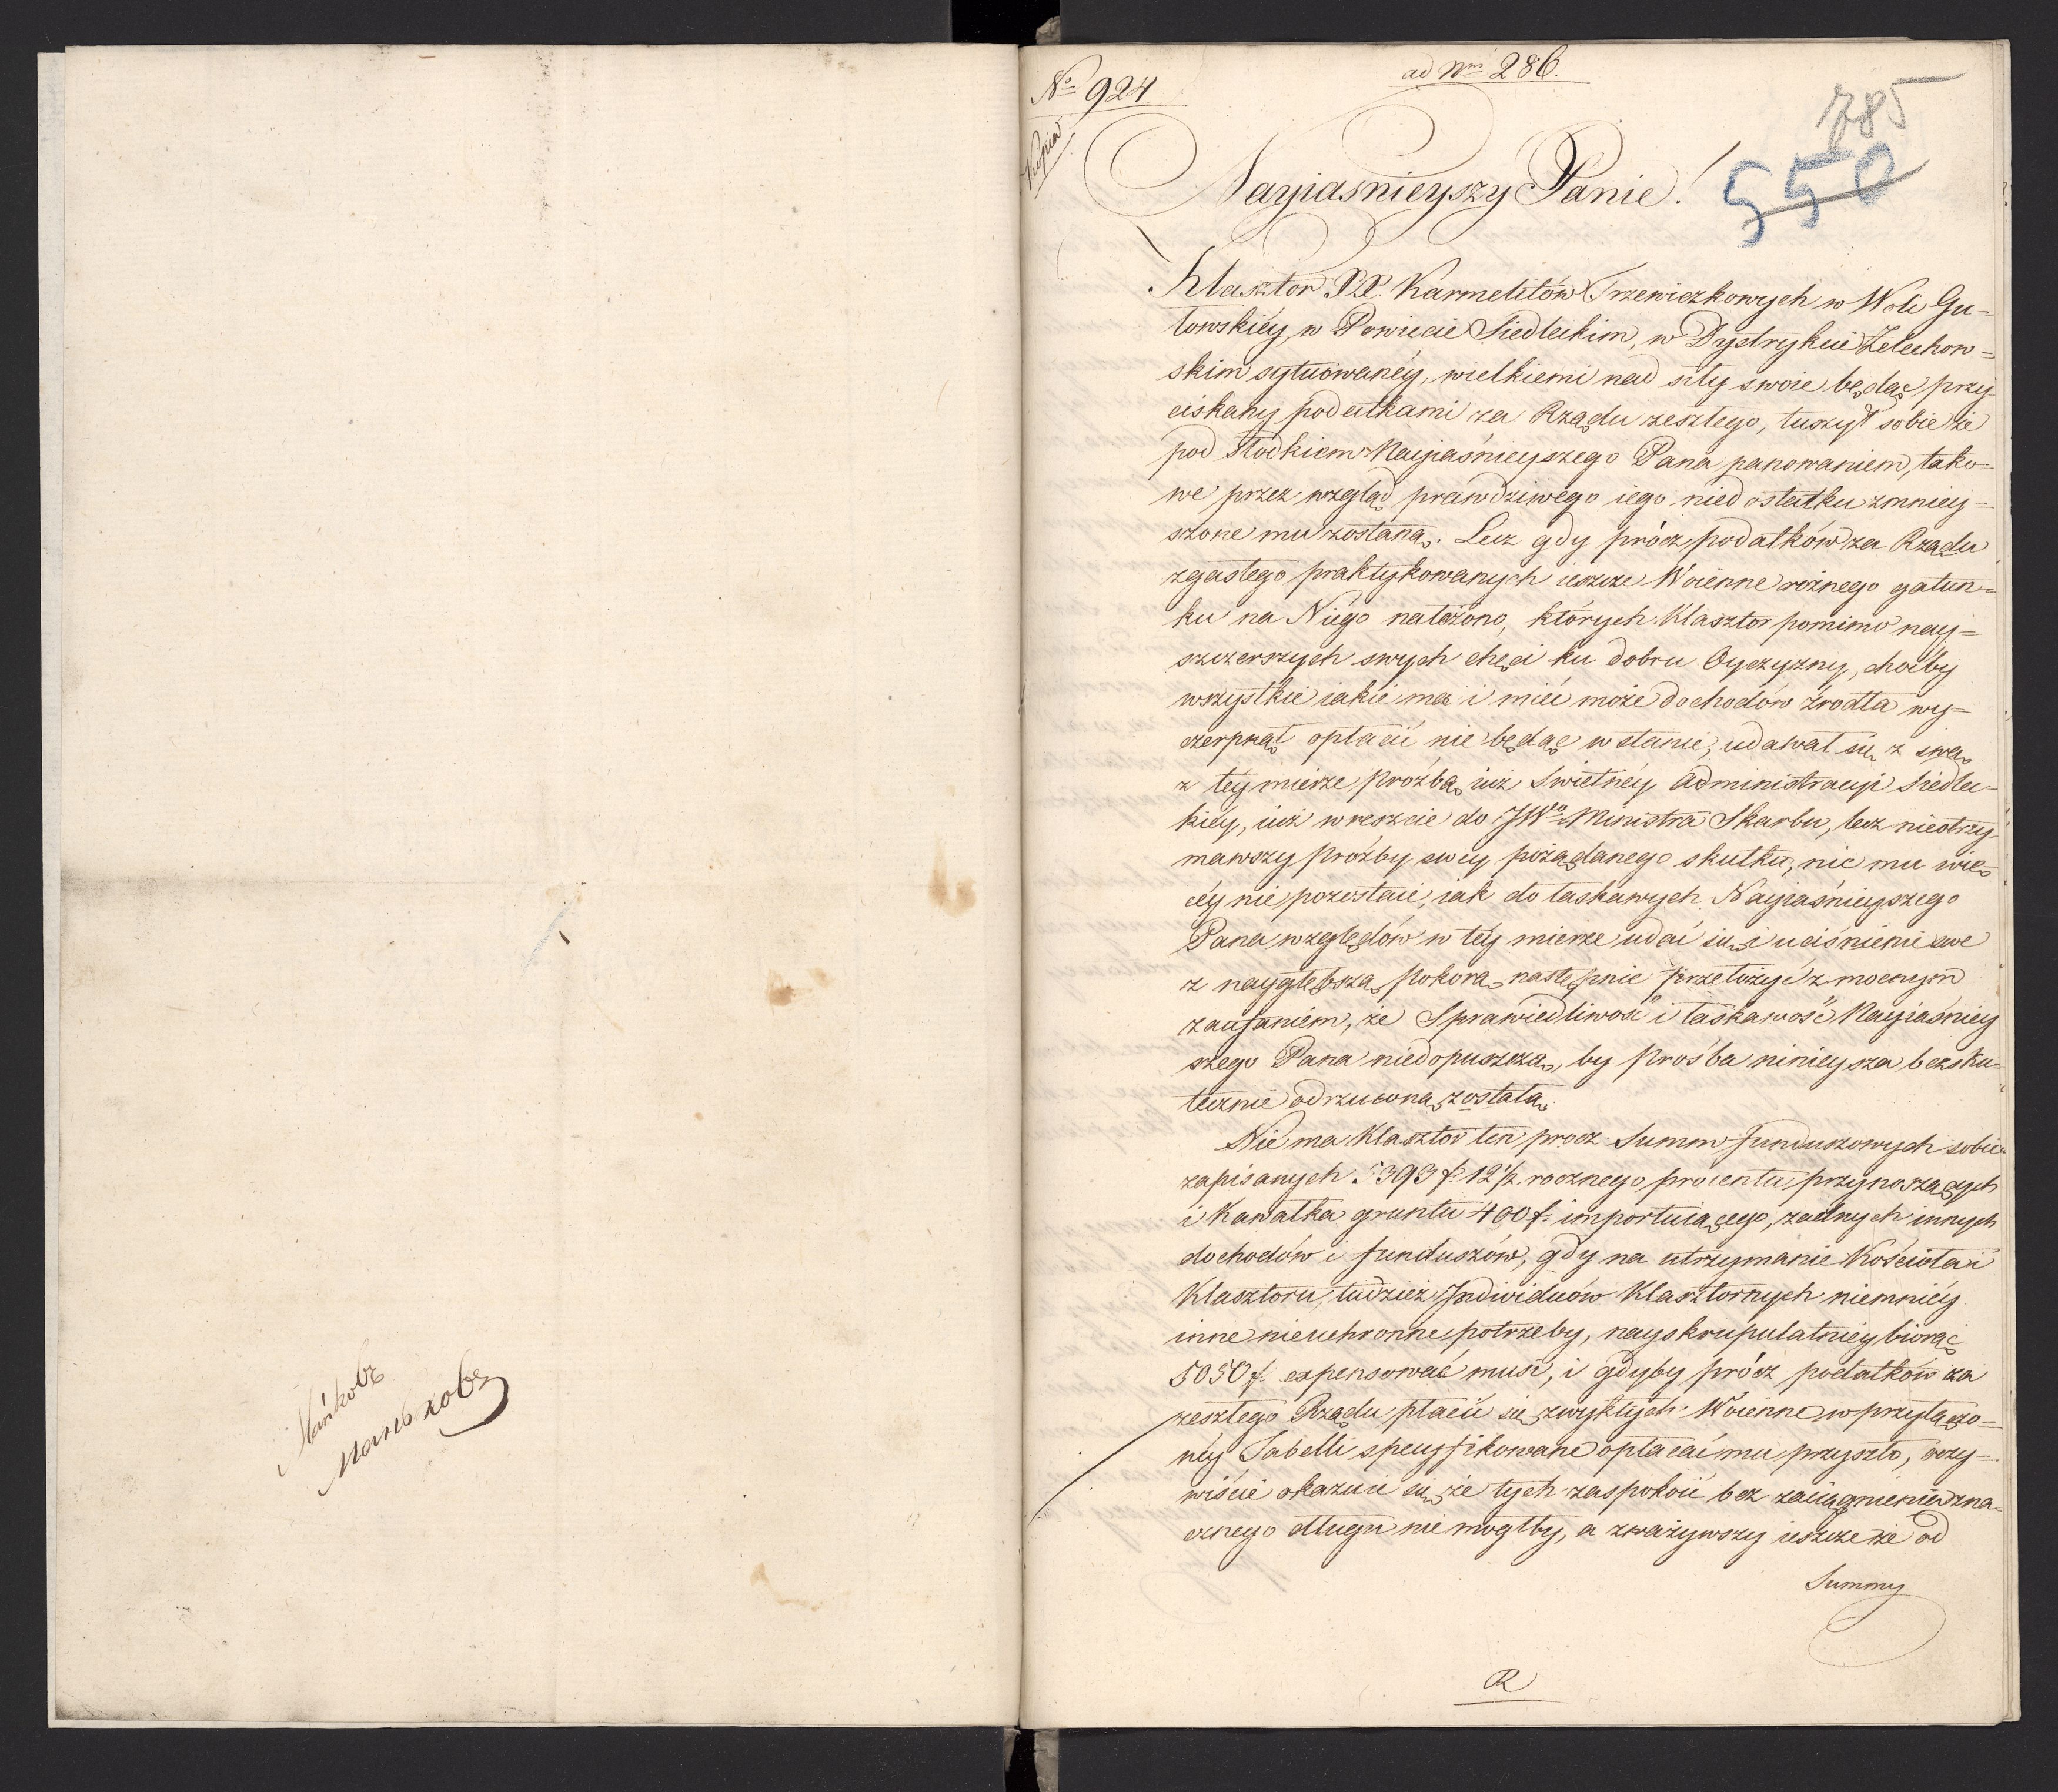 Mańkobz
Маньковз
ad Nrm 286.
No 924
Kopia
785
550
Nayiasnieyszy Panie!
Klasztor XX. Karmelitów Trzewiczkowych w Woli Gu=
łowskiéy, w Powiecie Siedleckim, w Dystrykcie Zelechow=
skim sytuowanéy, wielkiemi nad siły swoie będąc przy
ciskany podatkami za Rządu zeszłego, tuszył sobie że
pod słodkiem Nayiaśnieyszego Pana panowaniem, tako=
we przez wzgląd prawdziwego iego niedostatku zmniey=
szone mu zostaną. Lecz gdy prócz podatków za Rządu
zgasłego praktykowanych ieszcze Woienne rożnego gatun=
ku na Niego nałożono, których Klasztor pomimo nay=
szczerszych swych chęci ku dobru Oyczyzny, choćby
wszystkie iakie ma i mieć może dochodów źrodła wy=
czerpnął opłacić nie będąc w stanie, udawał się z swą
z téy mierze prożbą iuż Swietnéy Administracyi Siedlec=
kiéy, iuż wreszcie do JWo Ministra Skarbu, lecz nieotrzy
mawszy prożby swey pożądanego skutku, nic mu wię=
céy nie pozostaie, iak do łaskawych Nayiaśnieyszego
Pana względów w téy mierze udać się i uciśnienie swe
z naygłębszą pokorą następnie przełożyć z mocnym
zaufaniem, że Sprawiedliwość i łaskawość Nayiaśniey
szego Pana niedopuszczą, by prośba ninieysza bezsku=
tecznie odrzuconą została.
Nie ma Klasztor ten procz Summ funduszowych sobie
zapisanych 5393 f 12½ rocznego procentu przynoszących
i Kawałka gruntu 400 f. importuiącego, żadnych innych
dochodów i funduszów, gdy na utrzymanie Kościoła i
Klasztoru, tudzież Individuów Klasztornych niemniéy
inne nieuchronne potrzeby, nayskrupulatniey biorąc
5050 f. expensować musi, i gdyby prócz podatków za
zeszłego Rządu płacić się zwykłych Woienne w przyłączo=
néy Tabelli specyfikowane opłacać mu przyszło, oczy=
wiście okazuie się, że tych zaspokoić bez zaciągnienia zna=
cznego długu nie mógłby, a zważywszy ieszcze że od
Summy
R